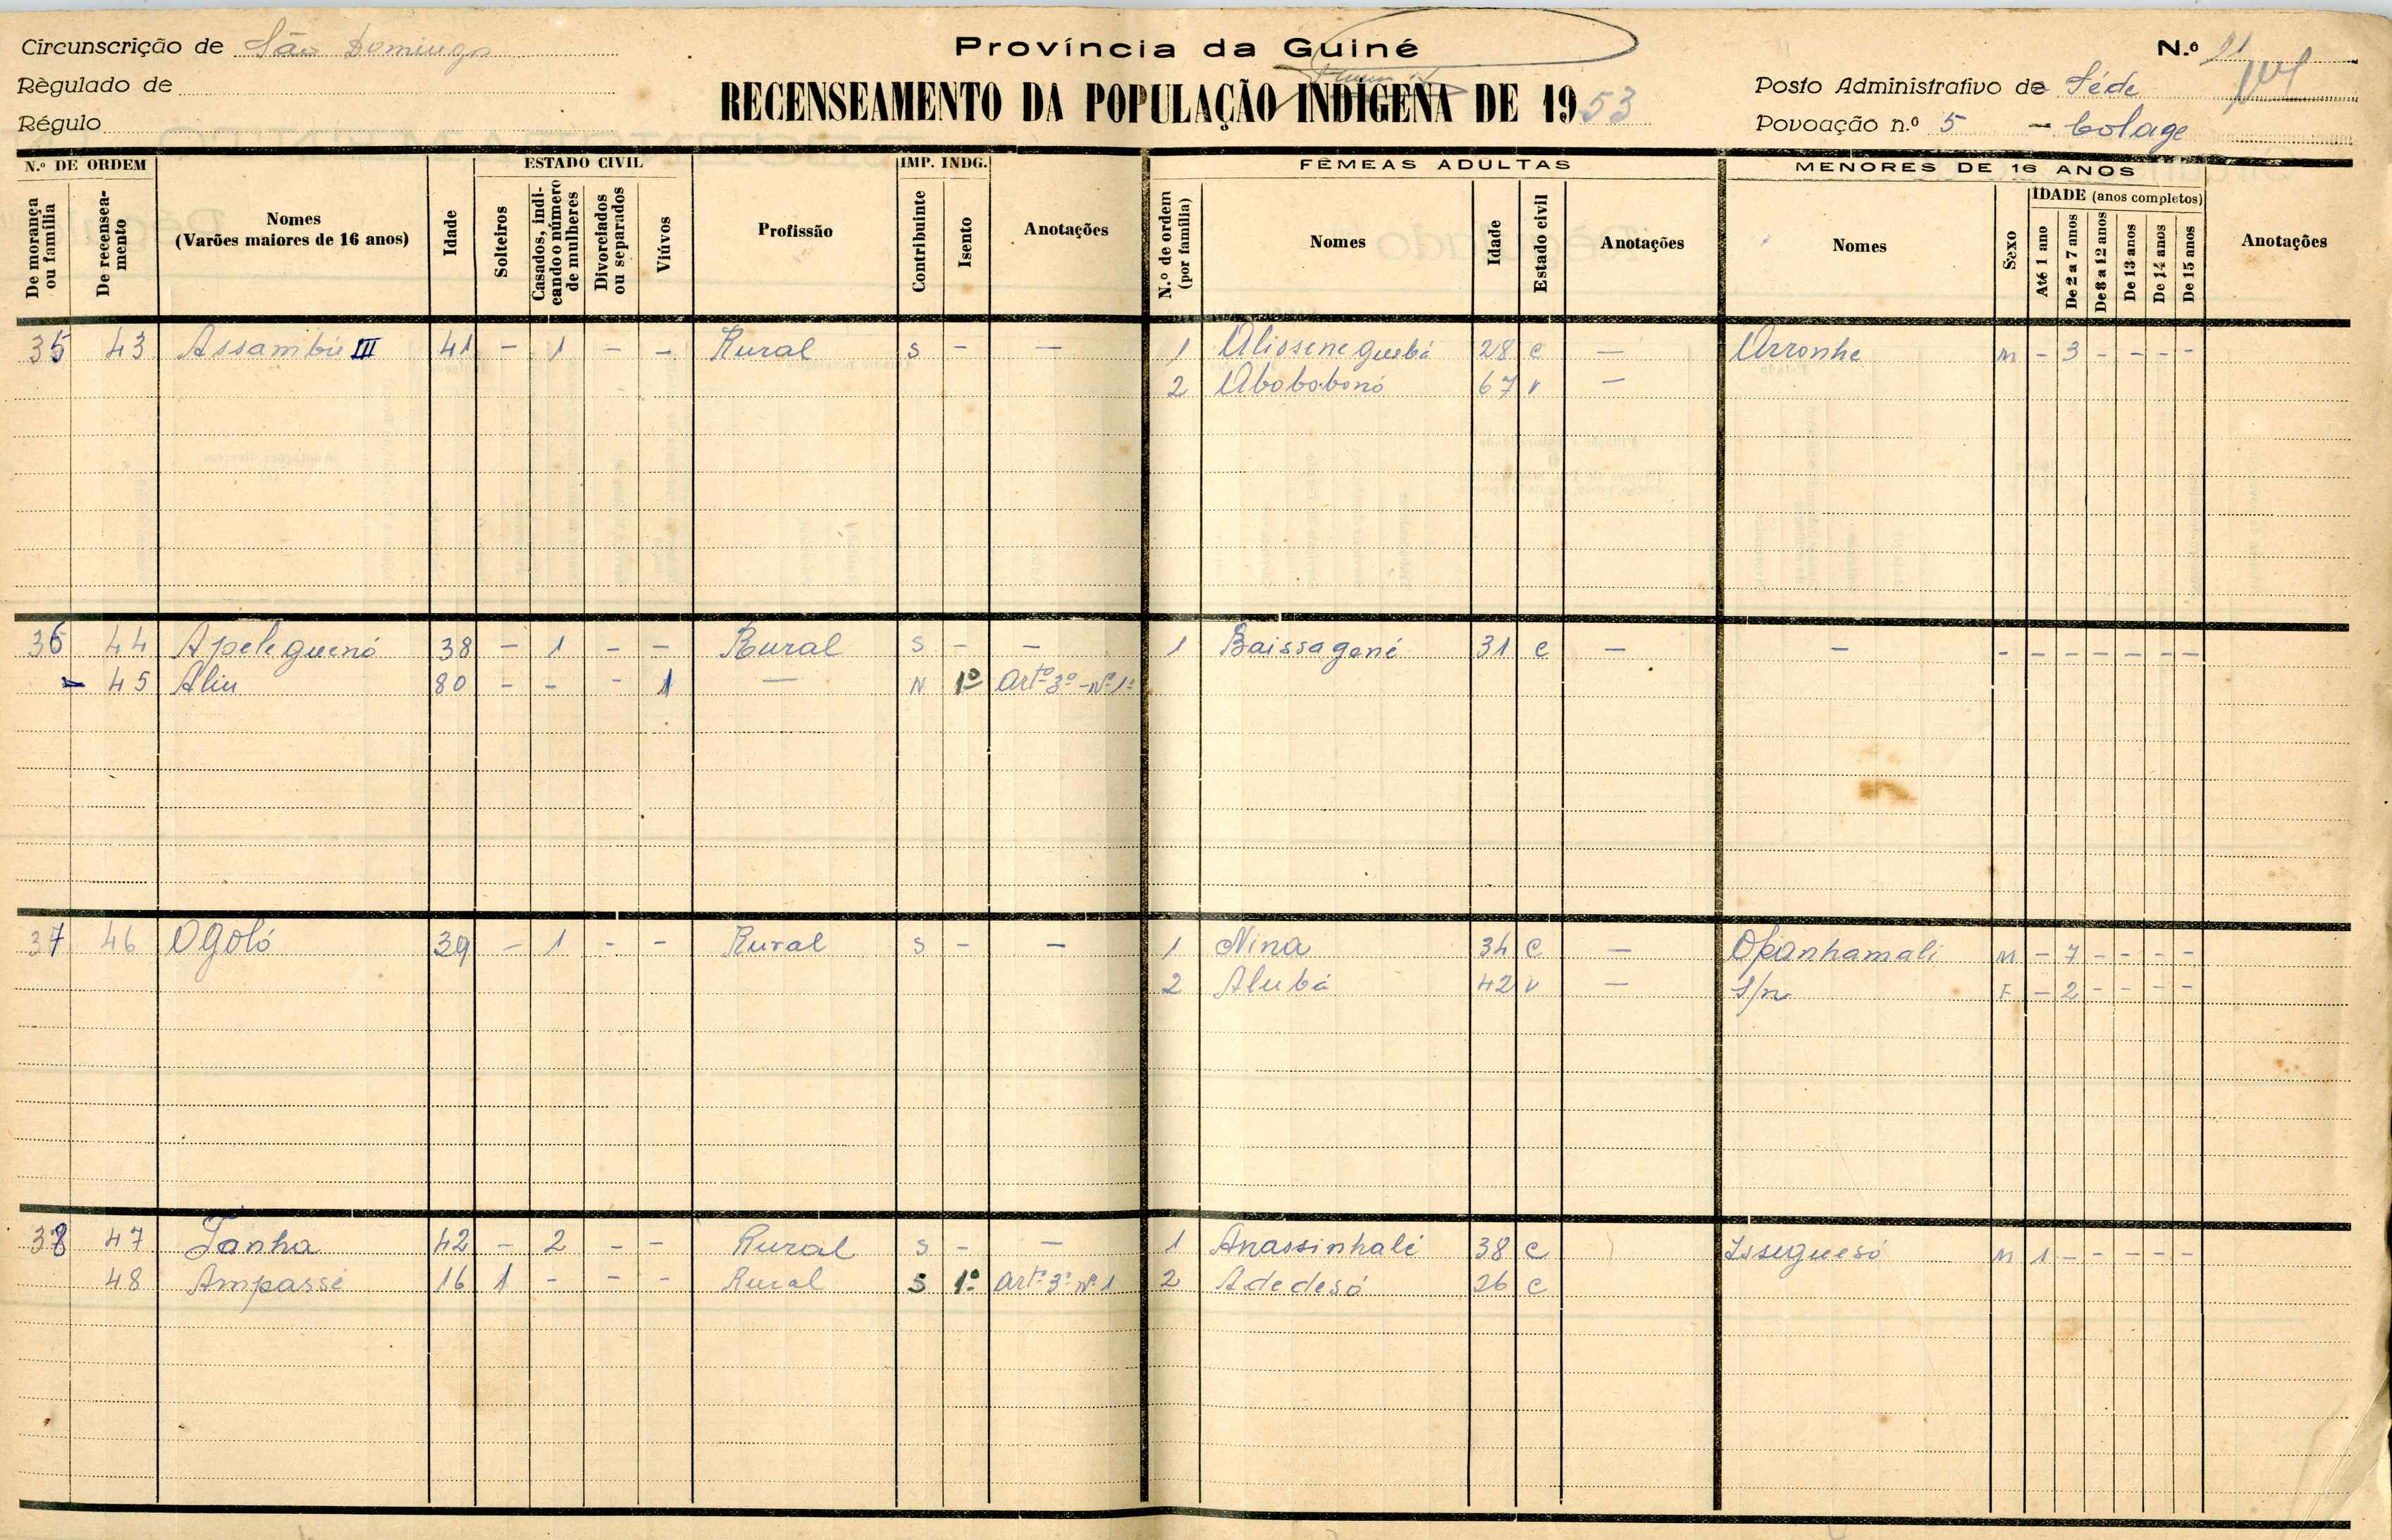 Circunscrição de São Domingos
Província da Guiné
N.º 21
Règulado de
RECENSEAMENTO DA POPULAÇÃO INDÍGENA DE 1953
Posto Administrativo de Séde
Régulo
Povoação n.º 5 - bolage
N.º DE ORDEM
ESTADO CIVIL
IMP. INDG.
FÊMEAS ADULTAS
MENORES DE 16 ANOS
De morança ou família
De recenseamento
Nomes
(Varões maiores de 16 anos)
Idade
Solteiros
Casados, indicando o número de mulheres
Divorciados ou separados
Viúvos
Profissão
Contribuinte
Isento
Anotações
N.º de ordem (por família)
Nomes
Idade
Estado civil
Anotações
Nomes
Sexo
IDADE (anos completos)
Até 1 ano
De 2 a 7 anos
De 8 a 12 anos
De 13 anos
De 14 anos
De 15 anos
Anotações
35 43 Assambú III 41 - 1 - - Rural S - - 1 Aliosene guebá 28 c - Arronhe M - 3 - - - -
2 Abobobonó 67 v -
36 44 Apeleguenó 38 - 1 - - Rural S - - 1 Baissagené 31 c - - - - - - - - -
- 45 Aliu 80 - - - 1 - N 1º Artº 3º - Nº 1º
37 46 Ogoló 39 - 1 - - Rural S - - 1 Nina 34 c - Opanhamali M - 7 - - - -
2 Alubá 42 v - S/n F - 2 - - - -
38 47 Tanha 42 - 2 - - Rural S - - 1 Anassinhalé 38 c Issuguesó M 1 - - - - -
48 Ampassé 16 1 - - - Rural S 1º Artº 3º Nº 1 2 Adedesó 26 c